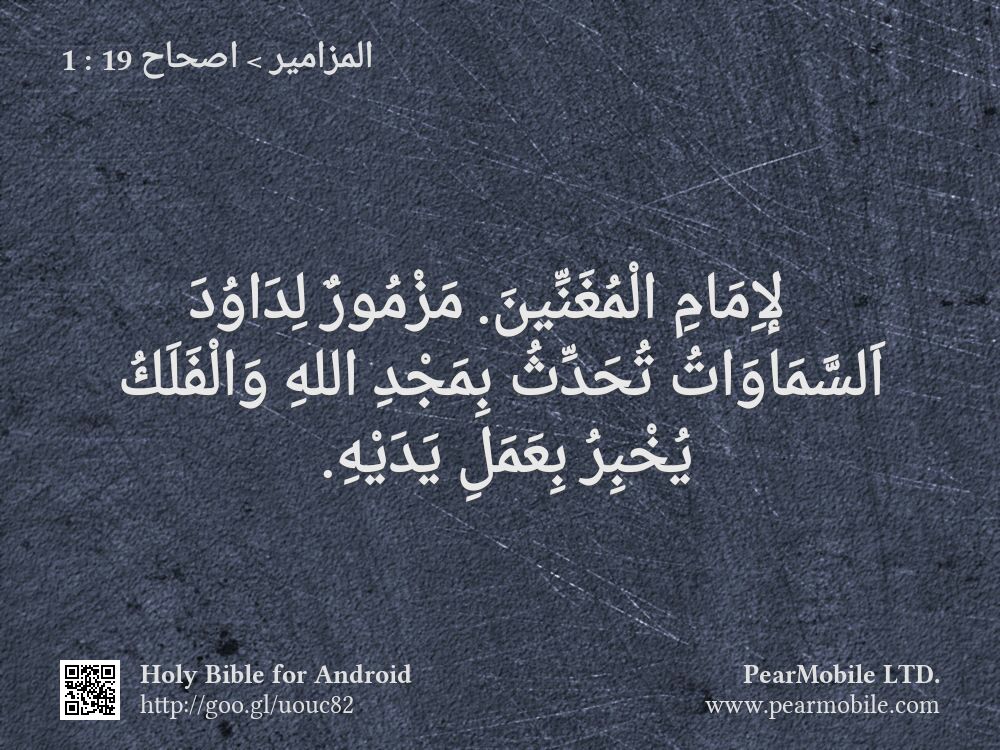 المزامير > اصحاح 19 : 1
لِإِمَامِ الْمُغَنِّينَ. مَزْمُورٌ لِدَاوُدَ
اَلسَّمَاوَاتُ تُحَدِّثُ بِمَجْدِ اللهِ وَالْفَلَكُ
يُخْبِرُ بِعَمَلِ يَدَيْهِ.
Holy Bible for Android
http://goo.gl/uouc82
PearMobile LTD.
www.pearmobile.com